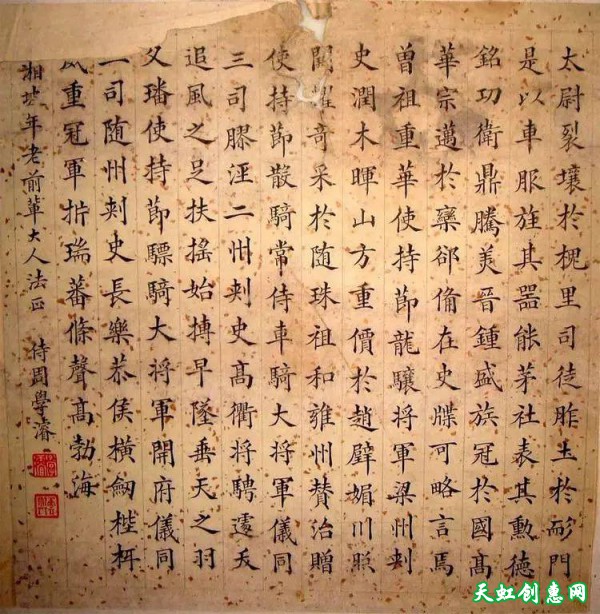 太尉裂壤於槐里司徒胙土於耏門
是以車服旌其器能茅社表其勳德
銘功衛鼎騰美晉鍾盛族冠於國髙
華宗邁於欒郤備在史牒可略言焉
曽祖重華使持節龍驤將軍梁州刾
史潤木暉山方重價於趙璧媚川照
闕耀奇采於随珠祖和雍州賛治贈
使持節散騎常侍車騎大將軍儀同
三司膠涇二州刾史髙衢將騁遽夭
追風之足扶搖始搏早墜垂天之羽
父璠使持節驃騎大將軍開府儀同
三司随州刾史長樂恭侯橫劒梐枑
威重冠軍析瑞蕃條聲髙勃海
湘坡年老前輩大人法正 侍周學濬
天虹创惠网